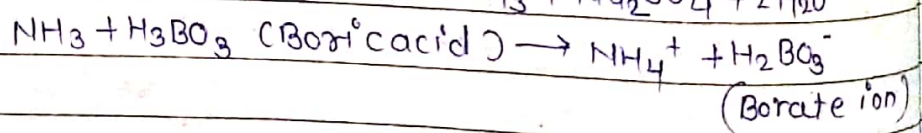 NH₃ + H₃BO₃ (Boric acid) → NH₄⁺ + H₂BO₃⁻
(Borate ion)